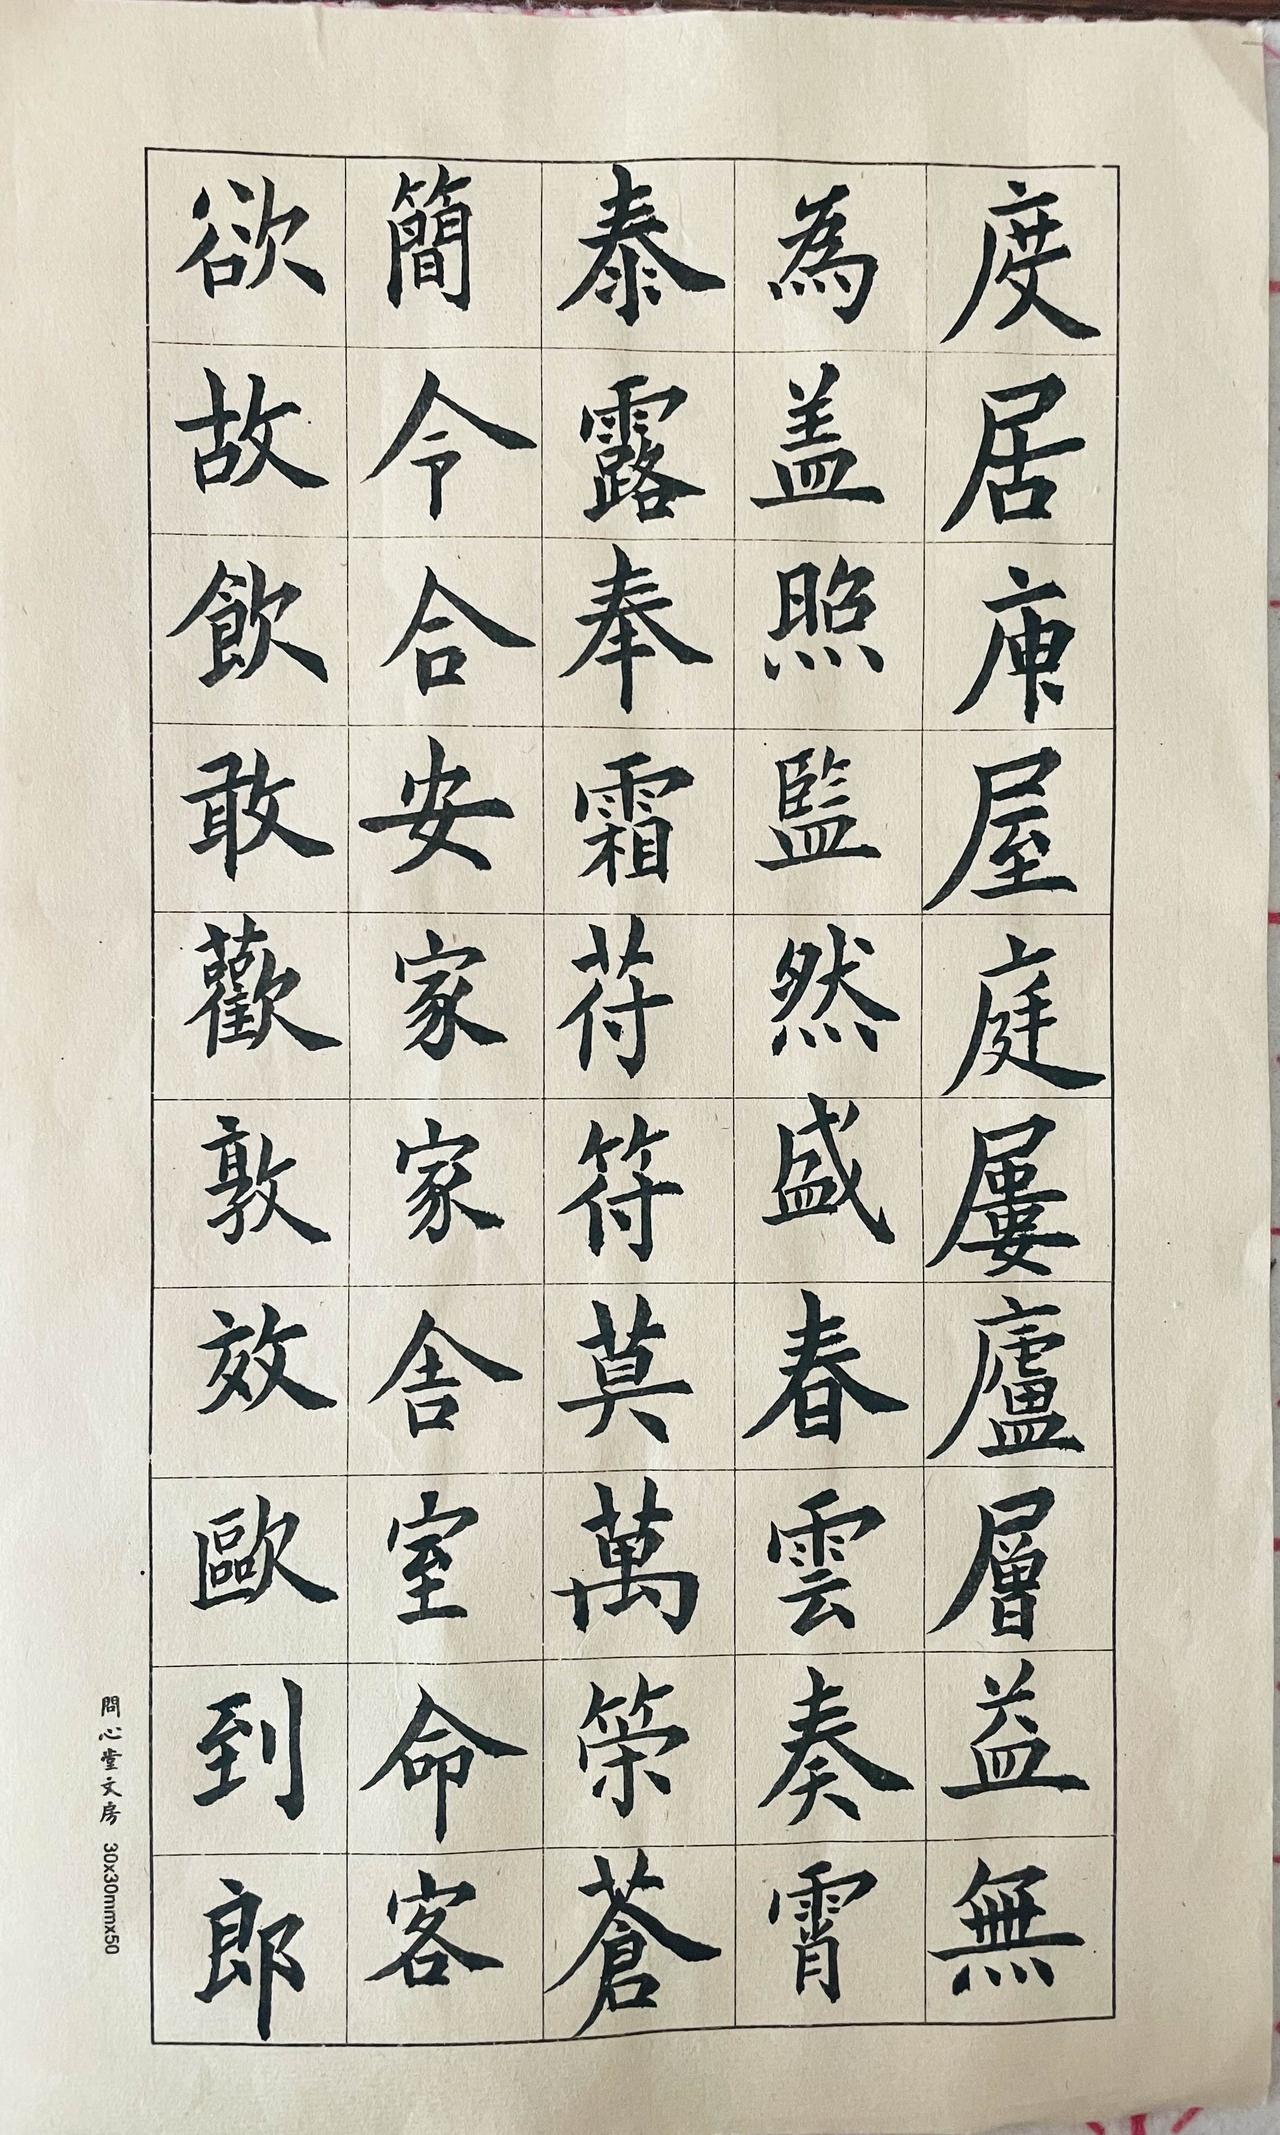 度居屋庭屢廬層益無
為盖照監然盛春雲奏霄
泰露奉霜苻符莫萬策蒼
簡令合安家家舍室命客
欲故飲敢歡敦效歐到郎
問心堂文房 30x30mmx50